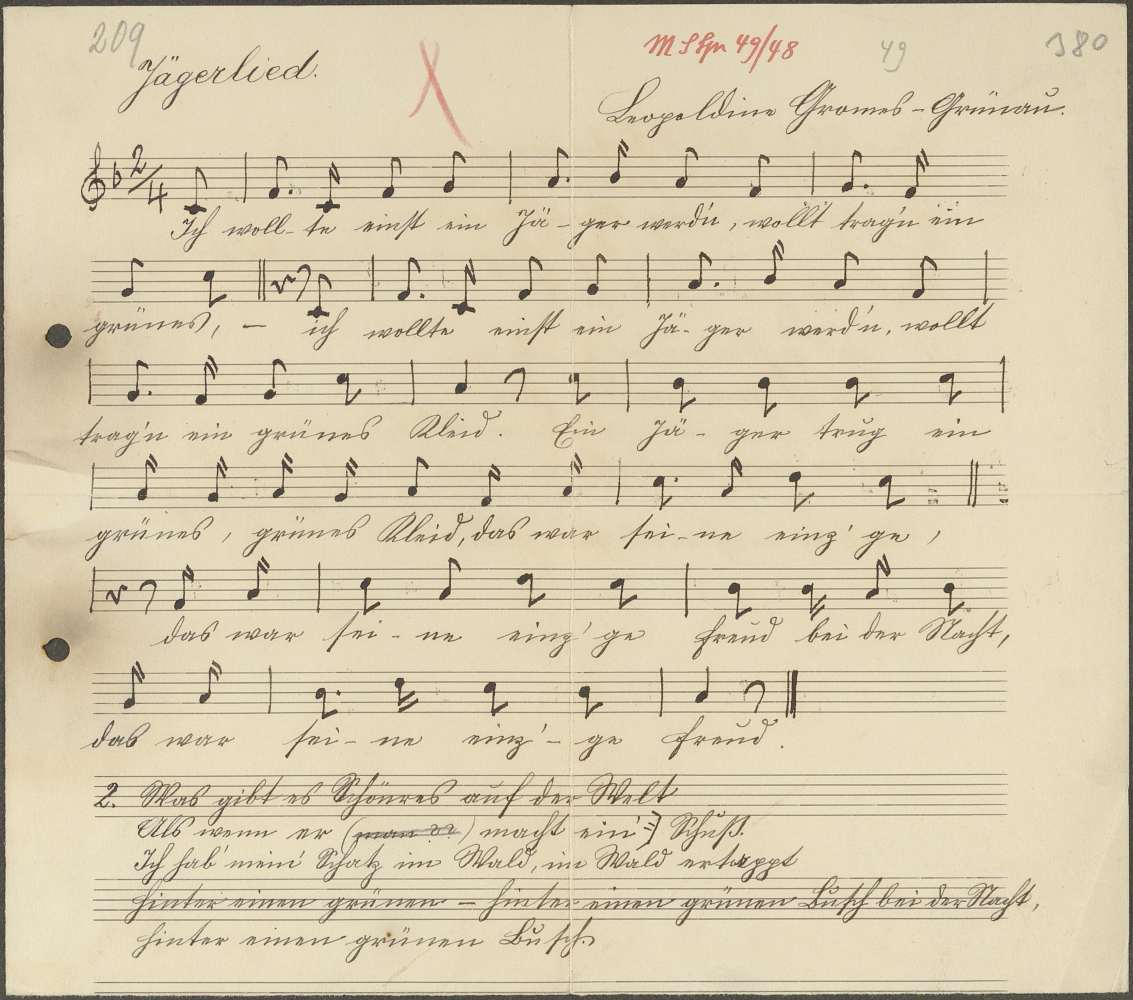 209
Jägerlied.
49/48
49
380
Leopoldine Gromes-Grünau.
2/4
Ich woll-te einst ein Jä-ger werd'n, wollt trag'n ein
grünes, - ich wollte einst ein Jä-ger werd'n, wollt
trag'n ein grünes Kleid. Ein Jä-ger trug ein
grünes, grünes Kleid, das war sei-ne einz'ge,
das war sei-ne einz'ge Freud bei der Nacht,
das war sei-ne einz'-ge Freud.
2. Was gibt es Schönres auf der Welt
Als wenn er (man ??) macht ein' Schuß.
Ich hab' mein' Schatz im Wald, im Wald ertappt
hinter einen grünen - hinter einen grünen Busch bei der Nacht,
hinter einen grünen Busch.